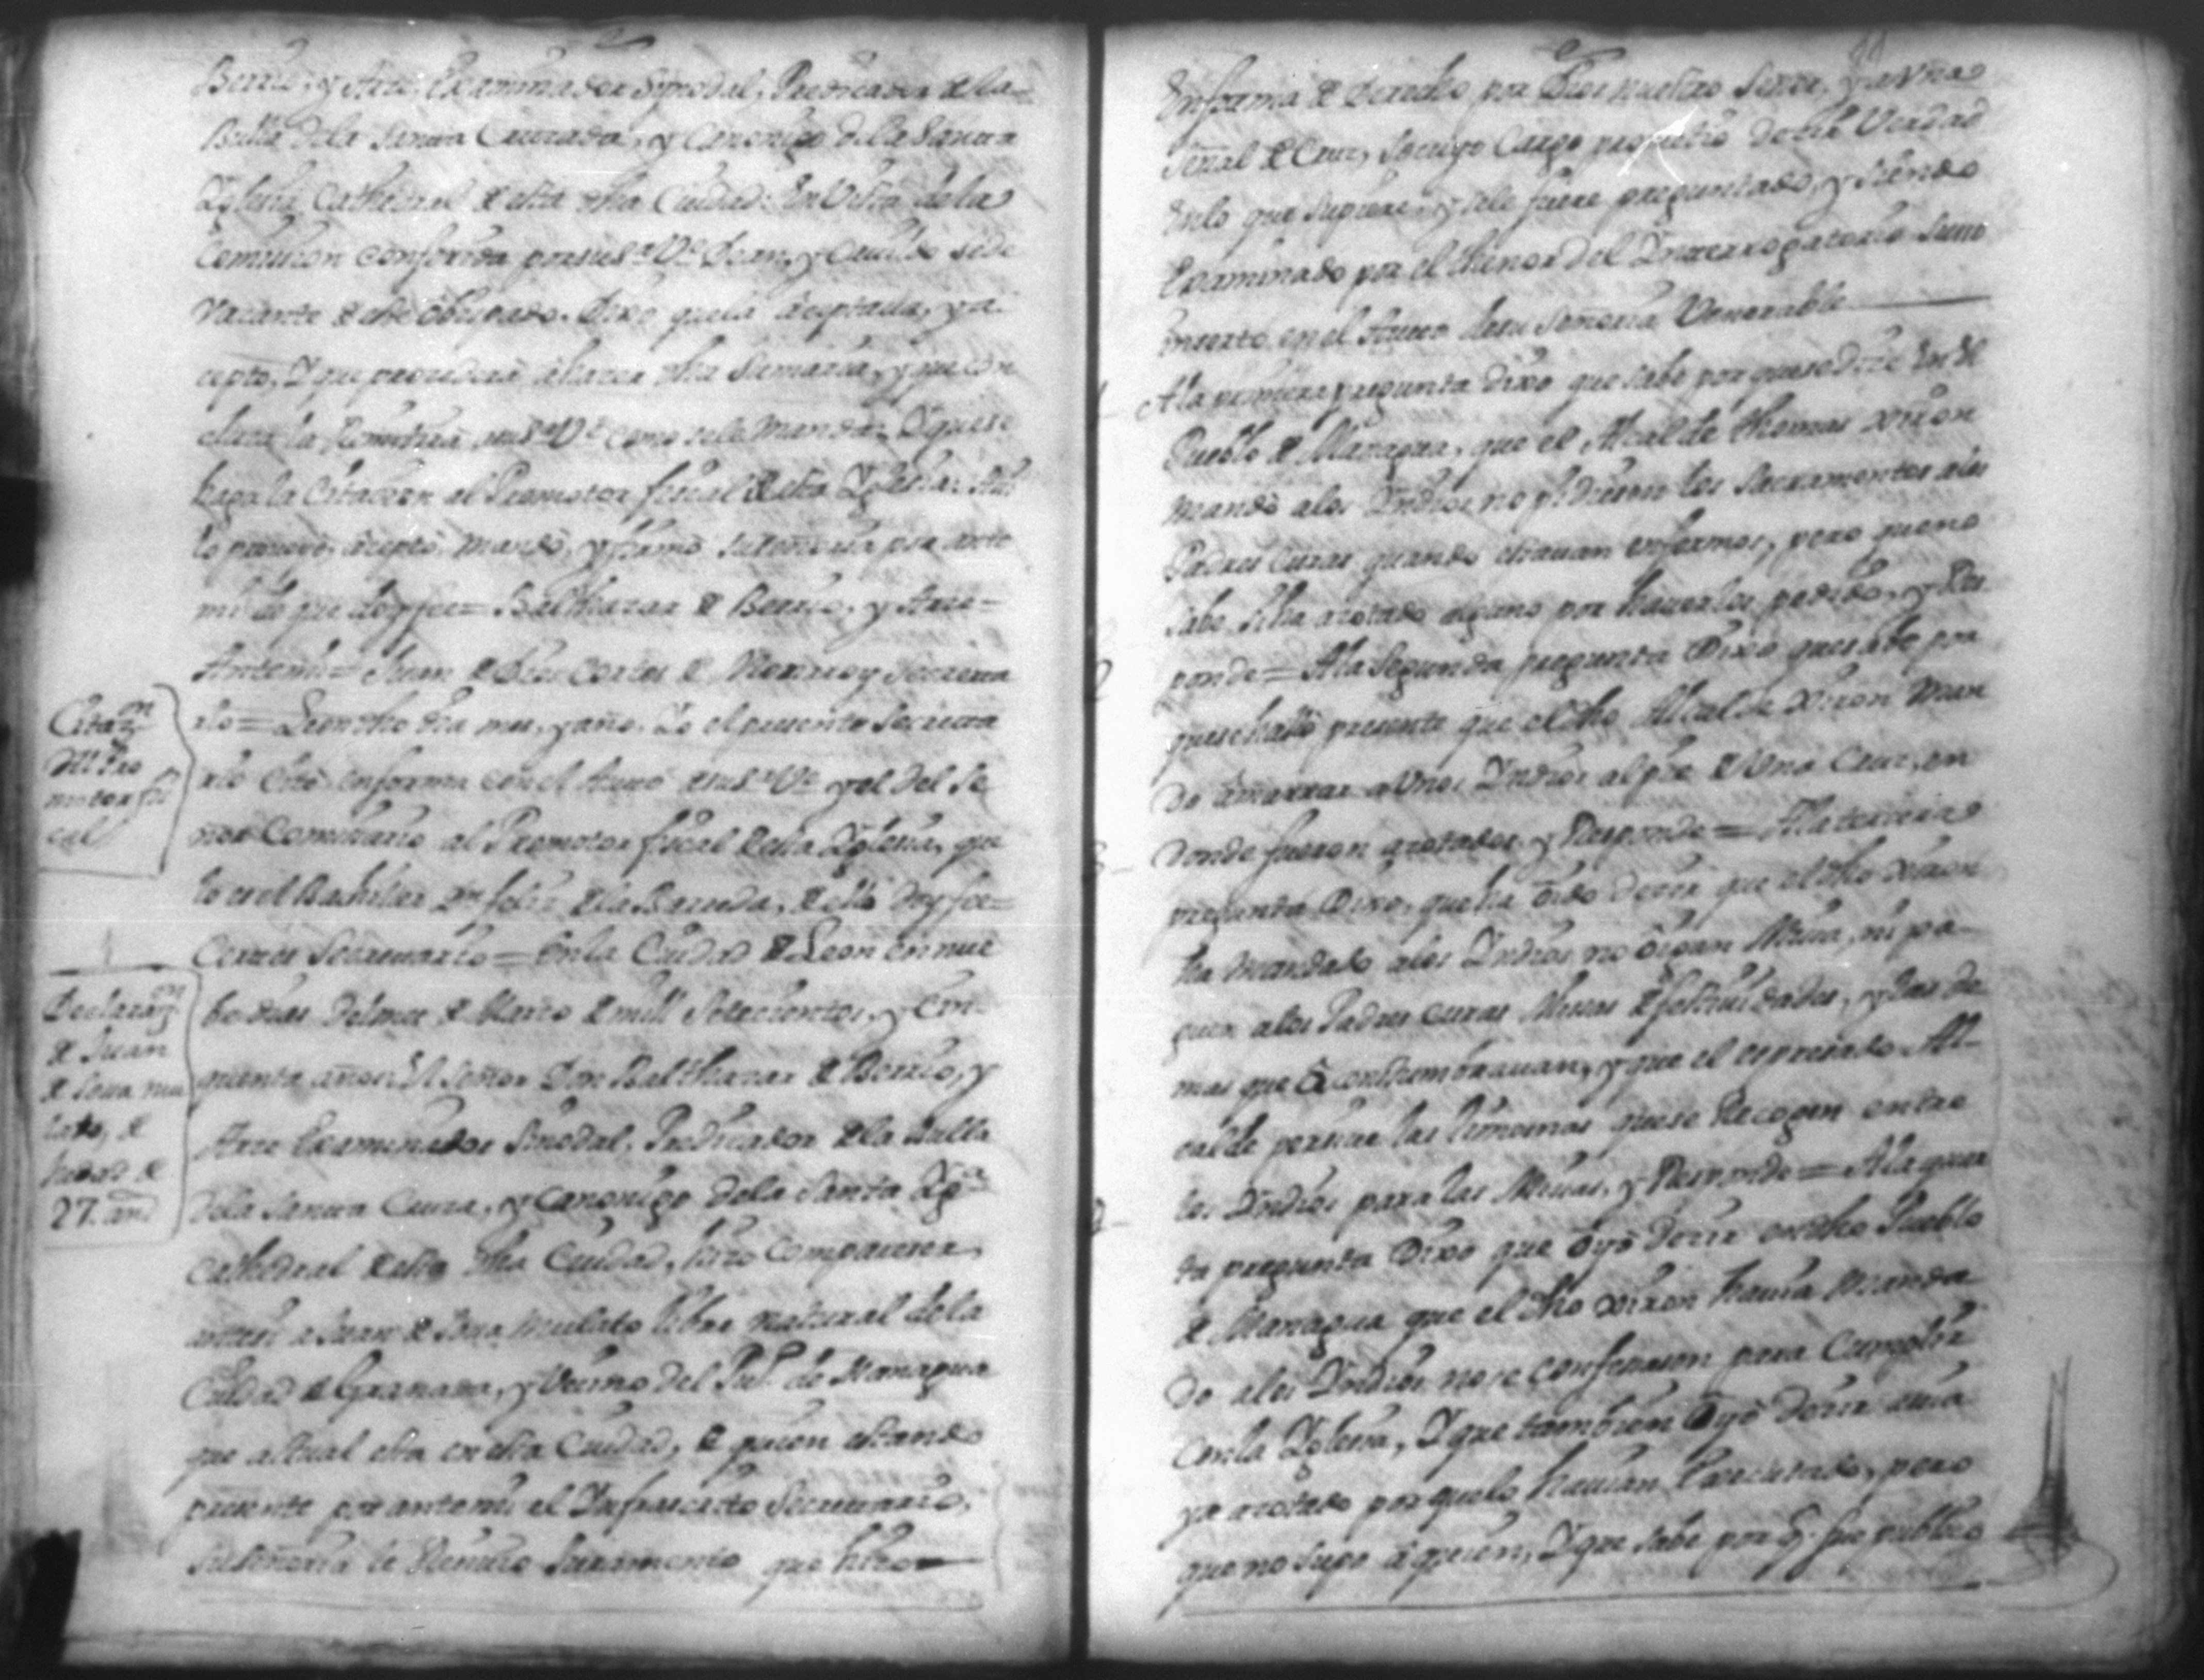 Berrio, y Arze, Examinador Synodal, Predicador de la
Bulla dela Santa Cruzada, y Canonigo dela Santa
Yglesia Cathedral de esta dha Ciudad: En Vista dela
Comision conferida por su Sa. Ve. Dean, y Cavildo sede
Vacante de este Obispado. Dixo que la aceptava, y a-
cepto, Y que procederá à hacer dha Sumaria, y que con
clusa la Remitirá, a su Sa. Ve. como se le manda, Y que se
haga la Citacion al Promotor fiscal de esta Yglesia: Assi
lo proveyo, acepto, mandò, y firmò su señoria por ante
mi de que doy fee = Balthazar de Berrio, y Arze =
Antemi = Juan de Dios Cortes de Monrroy Secreta
rio = En dho dia mes, y año. Yo el presente Secreta
rio Citè en forma con el Auto de su Sa. Ve. y el del Se
ñor Comisario al Promotor fiscal de esta Yglesia, que
lo es el Bachiller Dn feliz de la Barreda, de ello doy fee =
Cortes Secretario = En la Ciudad de Leon en nue
be dias del mes de Marzo de mill Setecientos, y Cin-
quenta años: El Señor Don Balthazar de Berrio, y
Arze Examinador Sinodal, Predicador de la Bulla
dela Santa Cruza, y Canonigo dela Santa Yga
Cathedral de esta dha Ciudad, hizo Comparecer,
antesi a Juan de Sosa Mulato libre natural dela
Ciudad de Granada, y Vecino del Pueo. de Managua
que actual esta en esta Ciudad, de quien estando
presente por antemi el Infraescrito Secretario,
Su Señoria le Recivio Juramento que hizo
Citazon
del Pro
motor fis
cal
Declarazon
de Juan
de Sosa mu
lato, de
hedad de
27. ans
En forma de Derecho por Dios nuestro Señor, y a Una
Señal de Cruz, So cuyo Cargo prometio decir Verdad
en lo que supiere, y se le fuere preguntado, y siendo
Examinado por el thenor del Interrogatorio
inserto en el Auto de su Señoria Venerable
1 A la primera pregunta dixo que sabe por que se dize en el
Pueblo de Managua, que el Alcalde Thomas Xiron
mandò a los Yndios no pidiesen los Sacramentos a los
Padres Curas quando estavan enfermos, pero que no
sabe si ha azotado alguno por haverlos pedido, y Res
2 ponde = A la Segunda pregunta Dixo que sabe por
que se hallò presente que el dho Alcalde Xiron Man
do amarrar a Unos Yndios al pie de Una Cruz, en
3 donde fueron azotados y Responde = A la tercera
pregunta Dixo, que ha oido decir que el dho Xiron
ha mandado a los Yndios no oigan Missa, ni pa-
guen a los Padres Curas Missas de festividades, y las de
mas que acostumbravan, y que el expresado Al-
calde percive las limosnas que se Recogen entre
4 los Yndios para las Missas, y Responde = A la quar
ta pregunta Dixo que oyò decir en dho Pueblo
de Managua que el dho Xiron havia Manda
do a los Yndios no se confesasen para Cumplir
Con la Yglesia, Y que tambien oyò decir avia
ya azotado por que lo havian Executado, pero
que no supo a quien, Y que sabe por q. fue publico